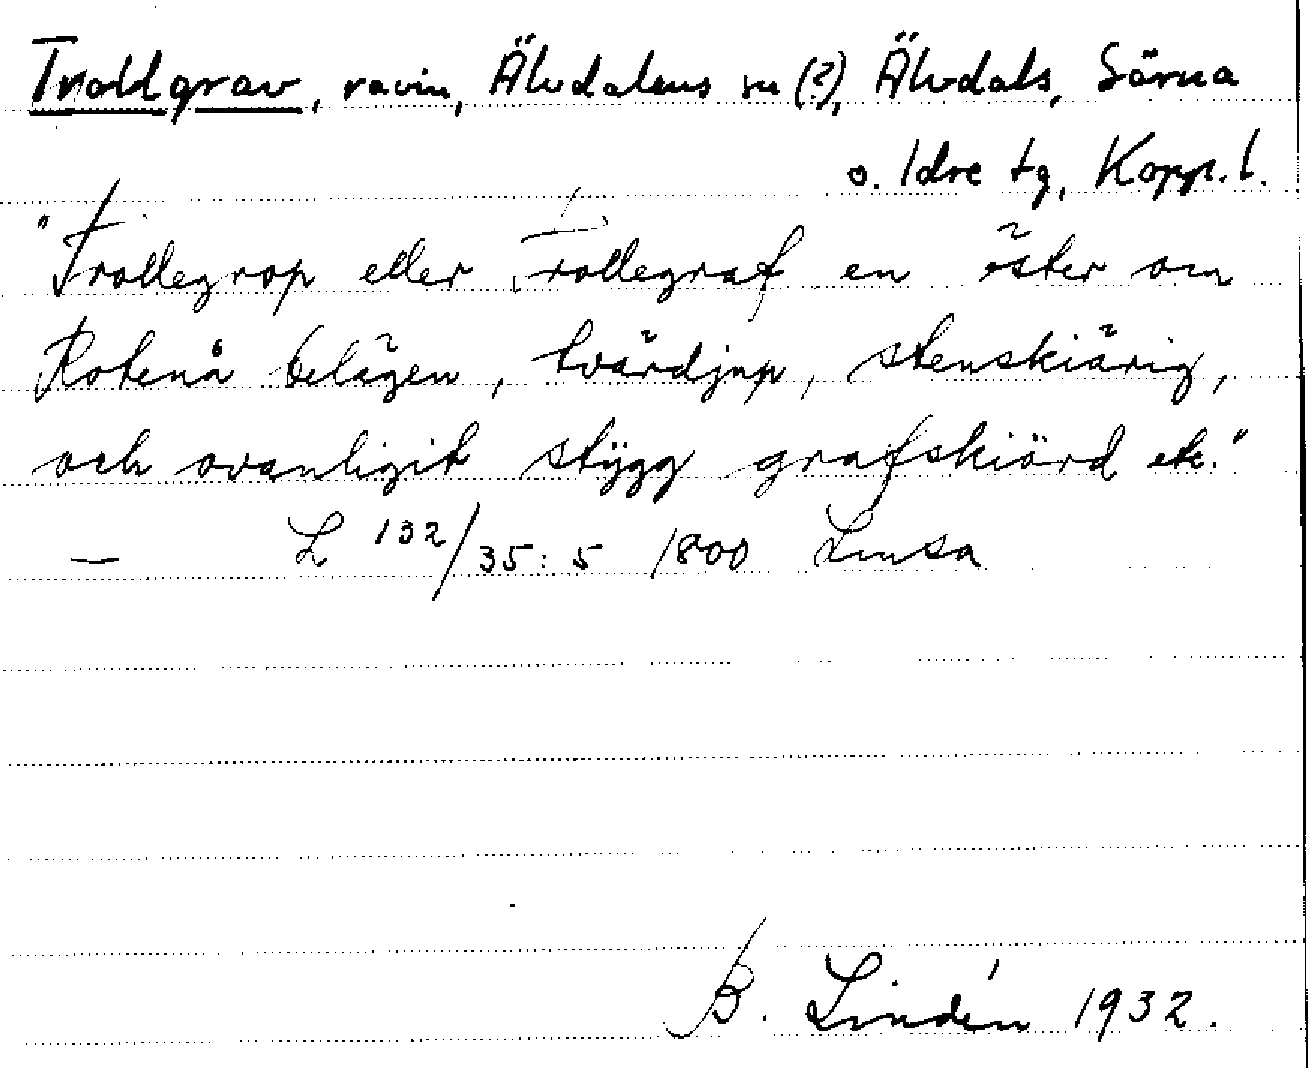 Trolldgrav, ravin, Älvdalens sn (?), Älvdals, Särna
o. Idre tg, Kopp. l.
"Trollegrop eller Trollegraf en öster om
Rotenå belägen, tvärdjup, stenskiärig,
och ovanligit stygg grafskiörd etc."
— L 132/35:5 1800 Linsa
B. Lindén 1932.